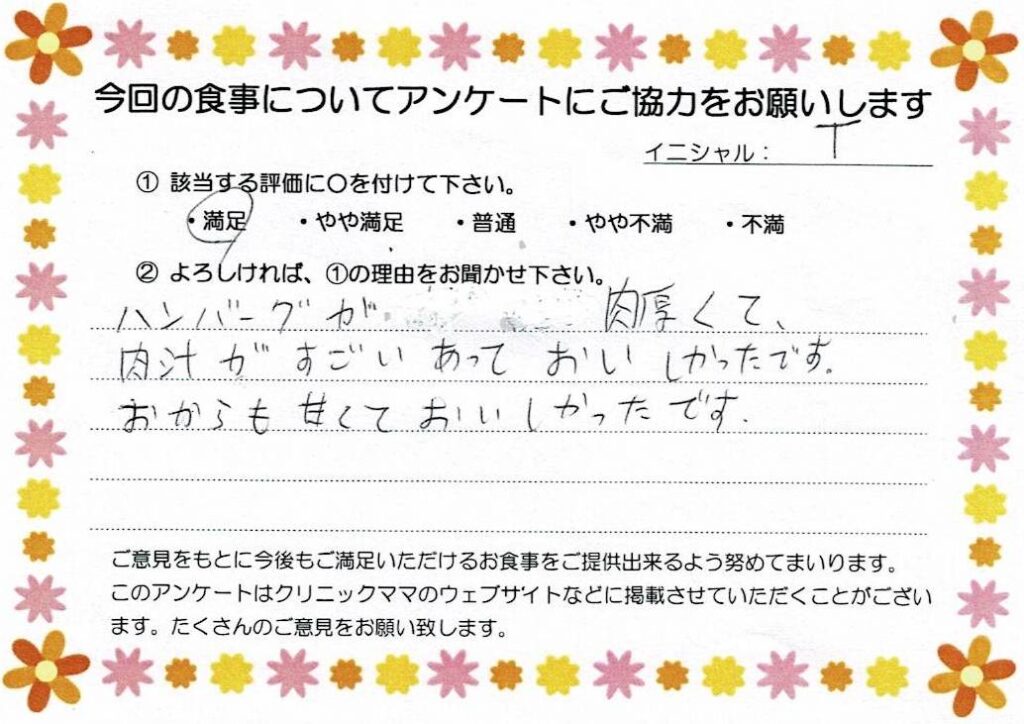 今回の食事についてアンケートにご協力をお願いします
イニシャル： T
① 該当する評価に〇を付けて下さい。
・満足 ・やや満足 ・普通 ・やや不満 ・不満
② よろしければ、①の理由をお聞かせ下さい。
ハンバーグが 肉厚くて、
肉汁がすごいあっておいしかったです。
おからも甘くておいしかったです.
ご意見をもとに今後もご満足いただけるお食事をご提供出来るよう努めてまいります。
このアンケートはクリニックママのウェブサイトなどに掲載させていただくことがござい
ます。たくさんのご意見をお願い致します。